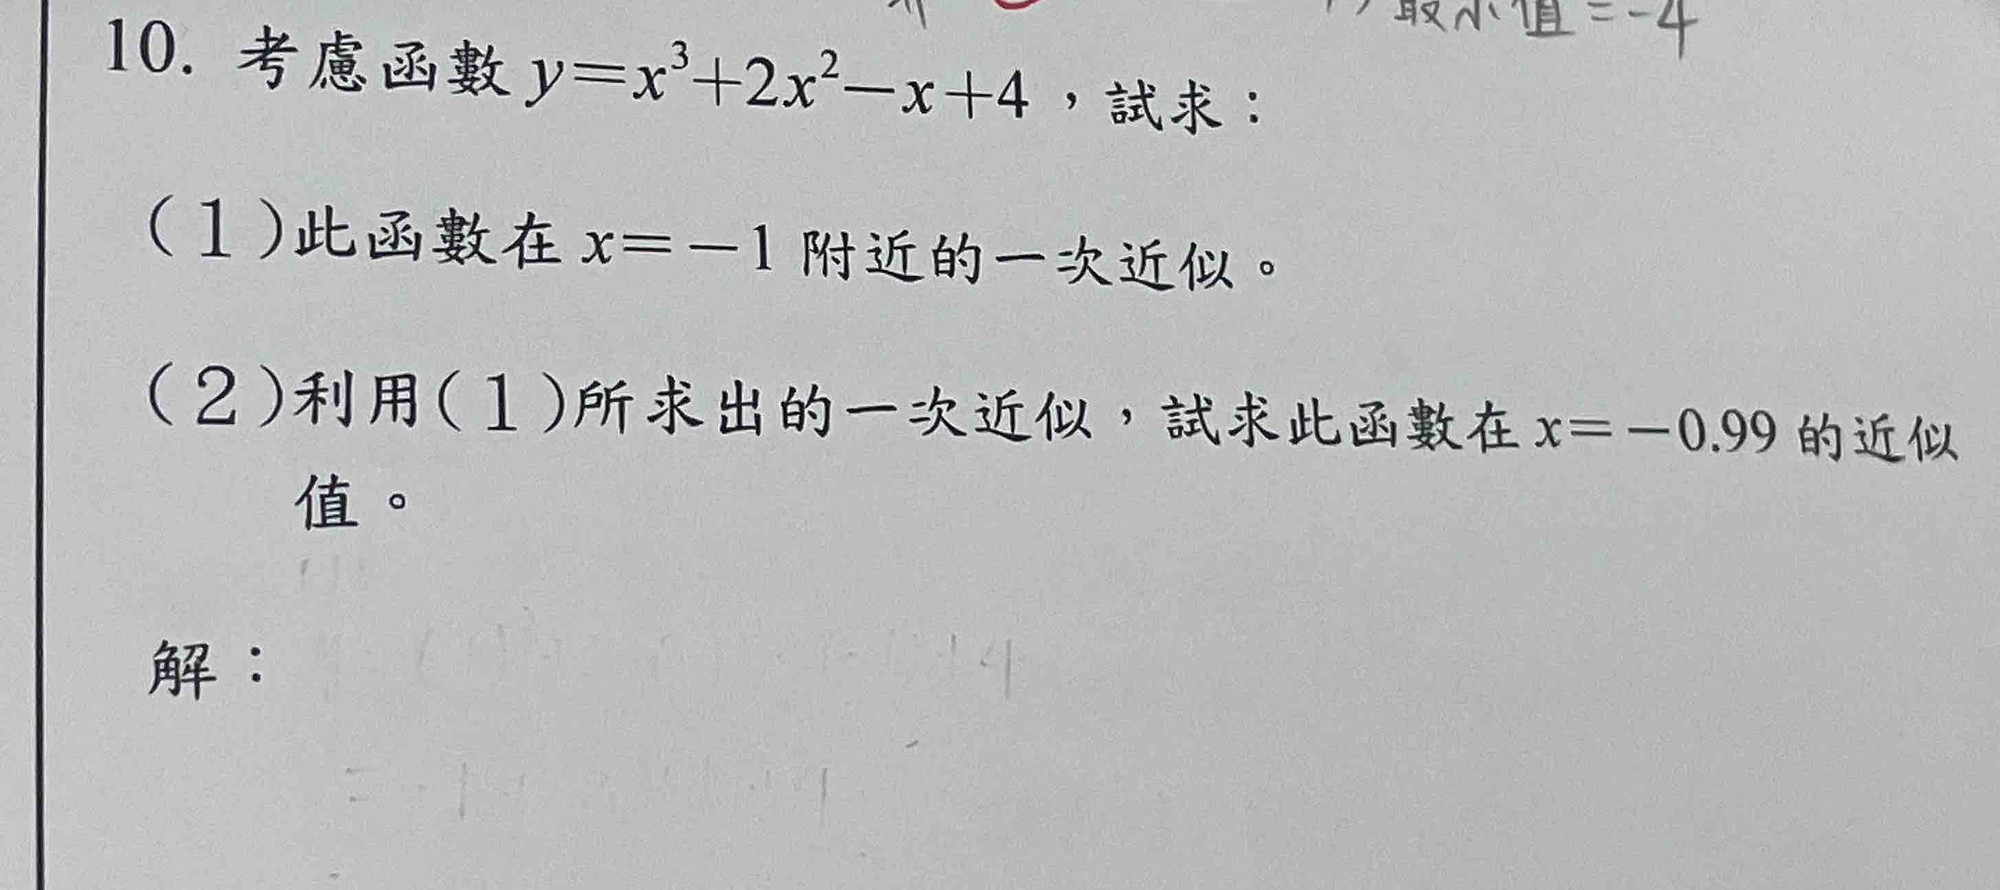 最小值=-4
10. 考慮函數 y=x³+2x²-x+4,試求:
(1)此函數在 x=-1 附近的一次近似。
(2)利用(1)所求出的一次近似,試求此函數在 x=-0.99 的近似
值。
解: